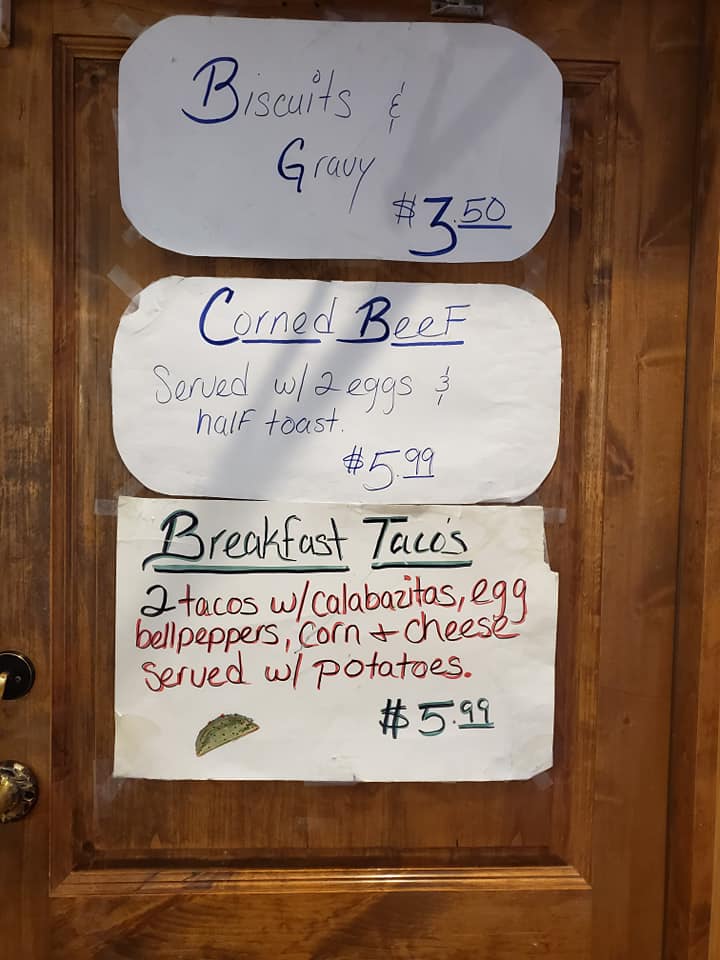 Biscuits &
Gravy
$3.50
Corned Beef
Served w/ 2 eggs &
half toast.
$5.99
Breakfast Taco's
2 tacos w/calabazitas, egg
bellpeppers, corn + cheese
served w/ potatoes.
$5.99